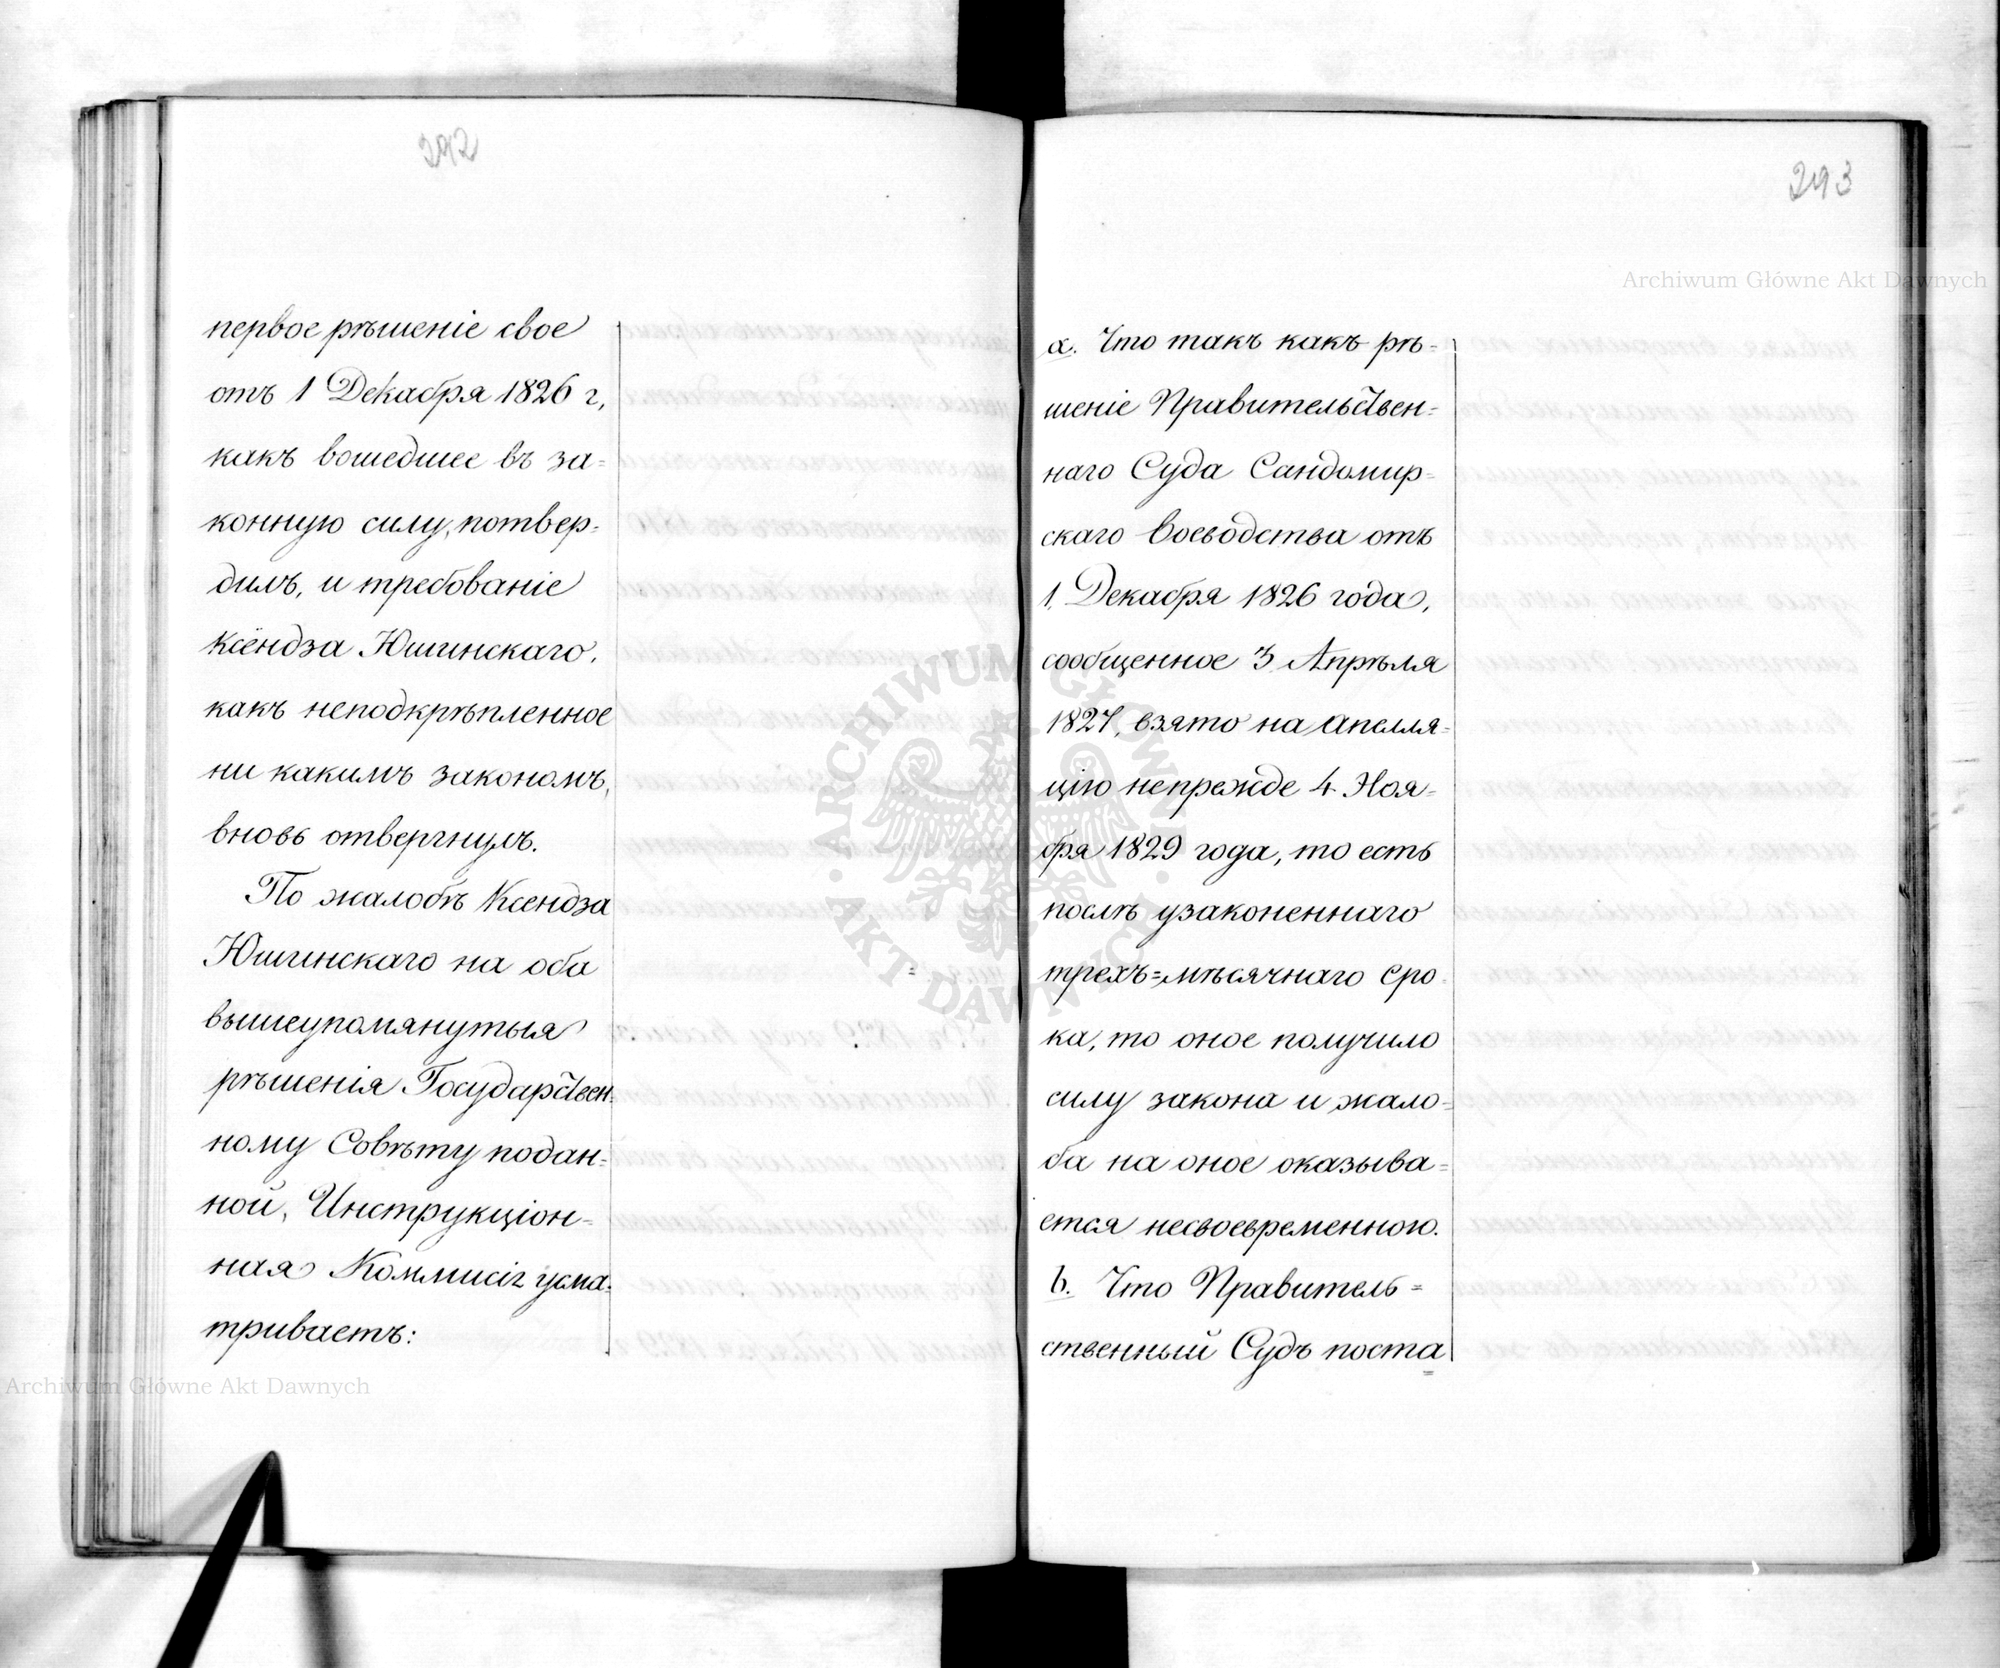 292
первое рѣшеніе свое
отъ 1 Декабря 1826 г,
какъ вошедшее въ за=
конную силу, потвер=
дилъ, и требованіе
Ксёндза Юшинскаго,
какъ неподкрѣпленное
ни какимъ закономъ,
вновь отвергнулъ.
По жалобѣ Ксендза
Юшинскаго на оба
вышеупомянутыя
рѣшенія Государствен=
ному Совѣту подан=
ной, Инструкціон=
ная Коммисія усма=
триваетъ:
293
a. Что такъ какъ рѣ=
шеніе Правительствен=
наго Суда Сандомир=
скаго Воеводства отъ
1 Декабря 1826 года,
сообщенное 3 Апрѣля
1827, взято на апелля=
цію непрежде 4 Ноя=
бря 1829 года, то есть
послѣ узаконеннаго
трехъ=мѣсячнаго сро=
ка, то оное получило
силу закона и жало=
ба на оное оказыва=
ется несвоевременною.
b. Что Правитель=
ственный Судъ поста=
Archiwum Główne Akt Dawnych
Archiwum Główne Akt Dawnych
ARCHIWUM GŁÓWNE
AKT DAWNYCH